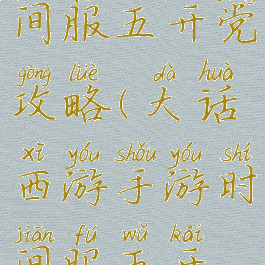 间服五开党
gōng lüè dà huà
攻略(大话
xī yóu shǒu yóu shí
西游手游时
jiān fú wǔ kāi
间服五开